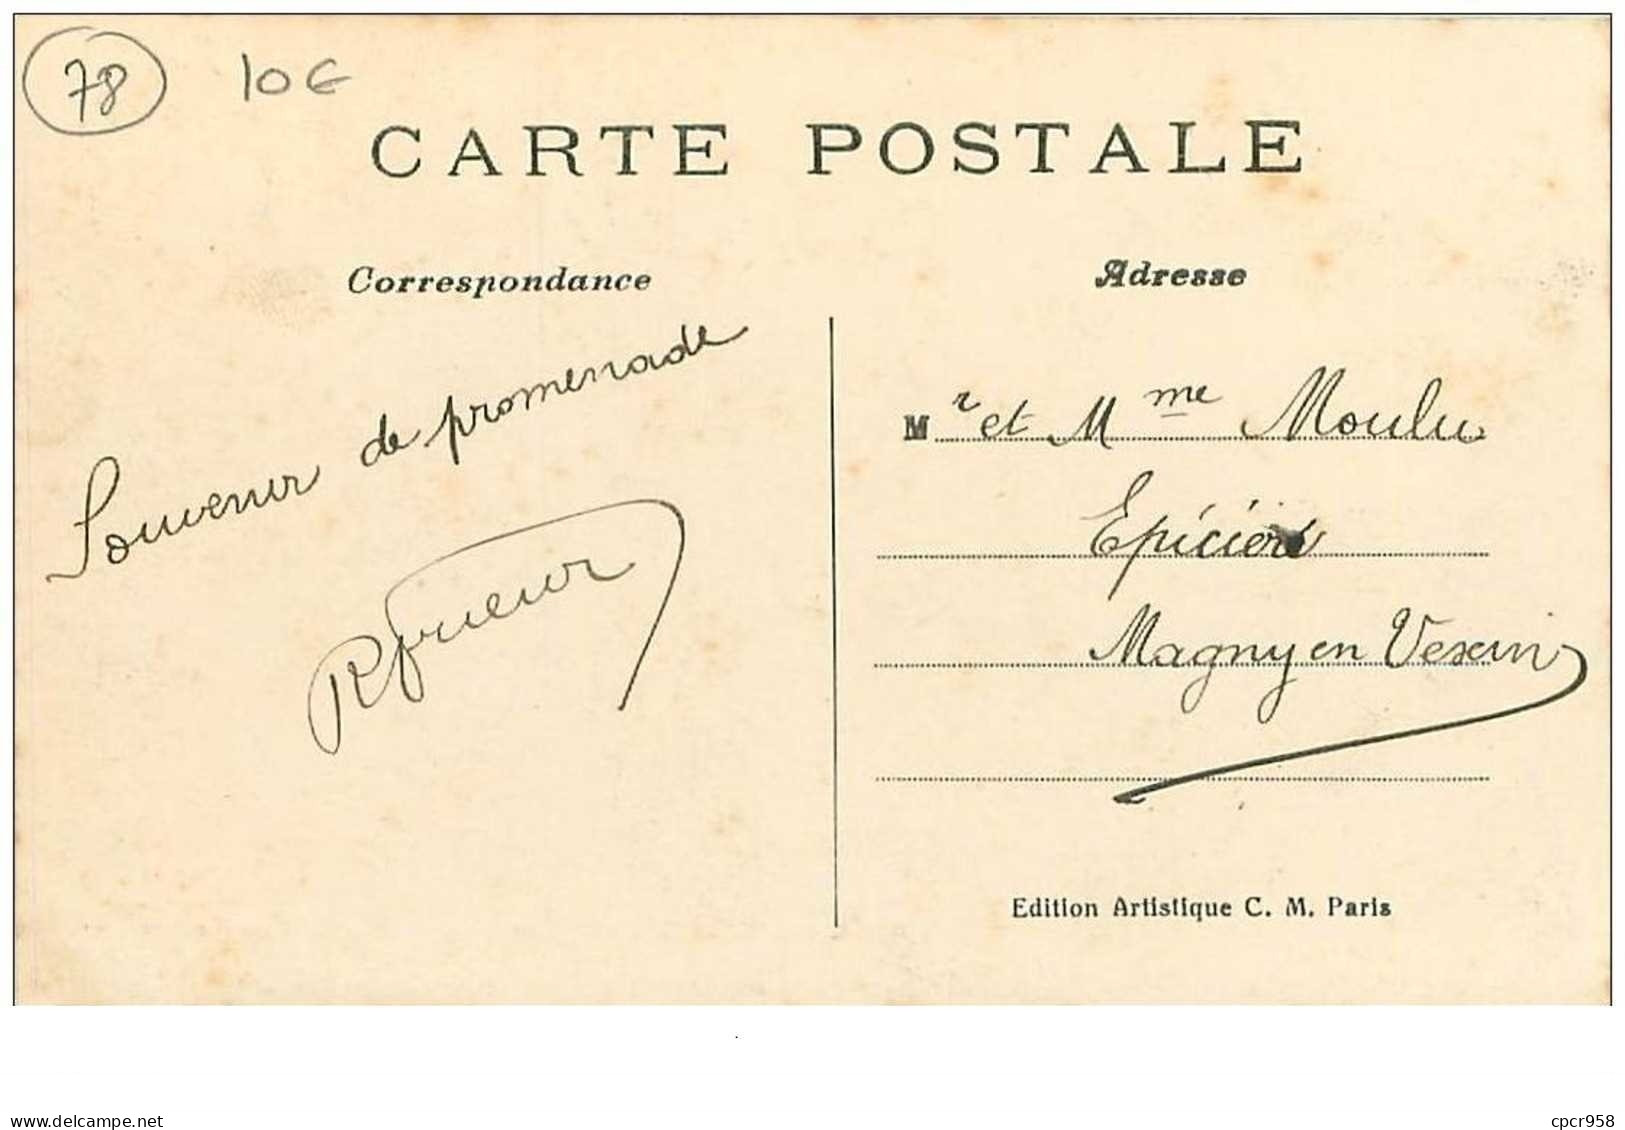 78 10€
CARTE POSTALE
Correspondance
Souvenir de promenade
Adresse
Mr et Mme Moulu
Epiciers
Magny en Vexin
Edition Artistique C. M. Paris
www.delcampe.net
cpcr958